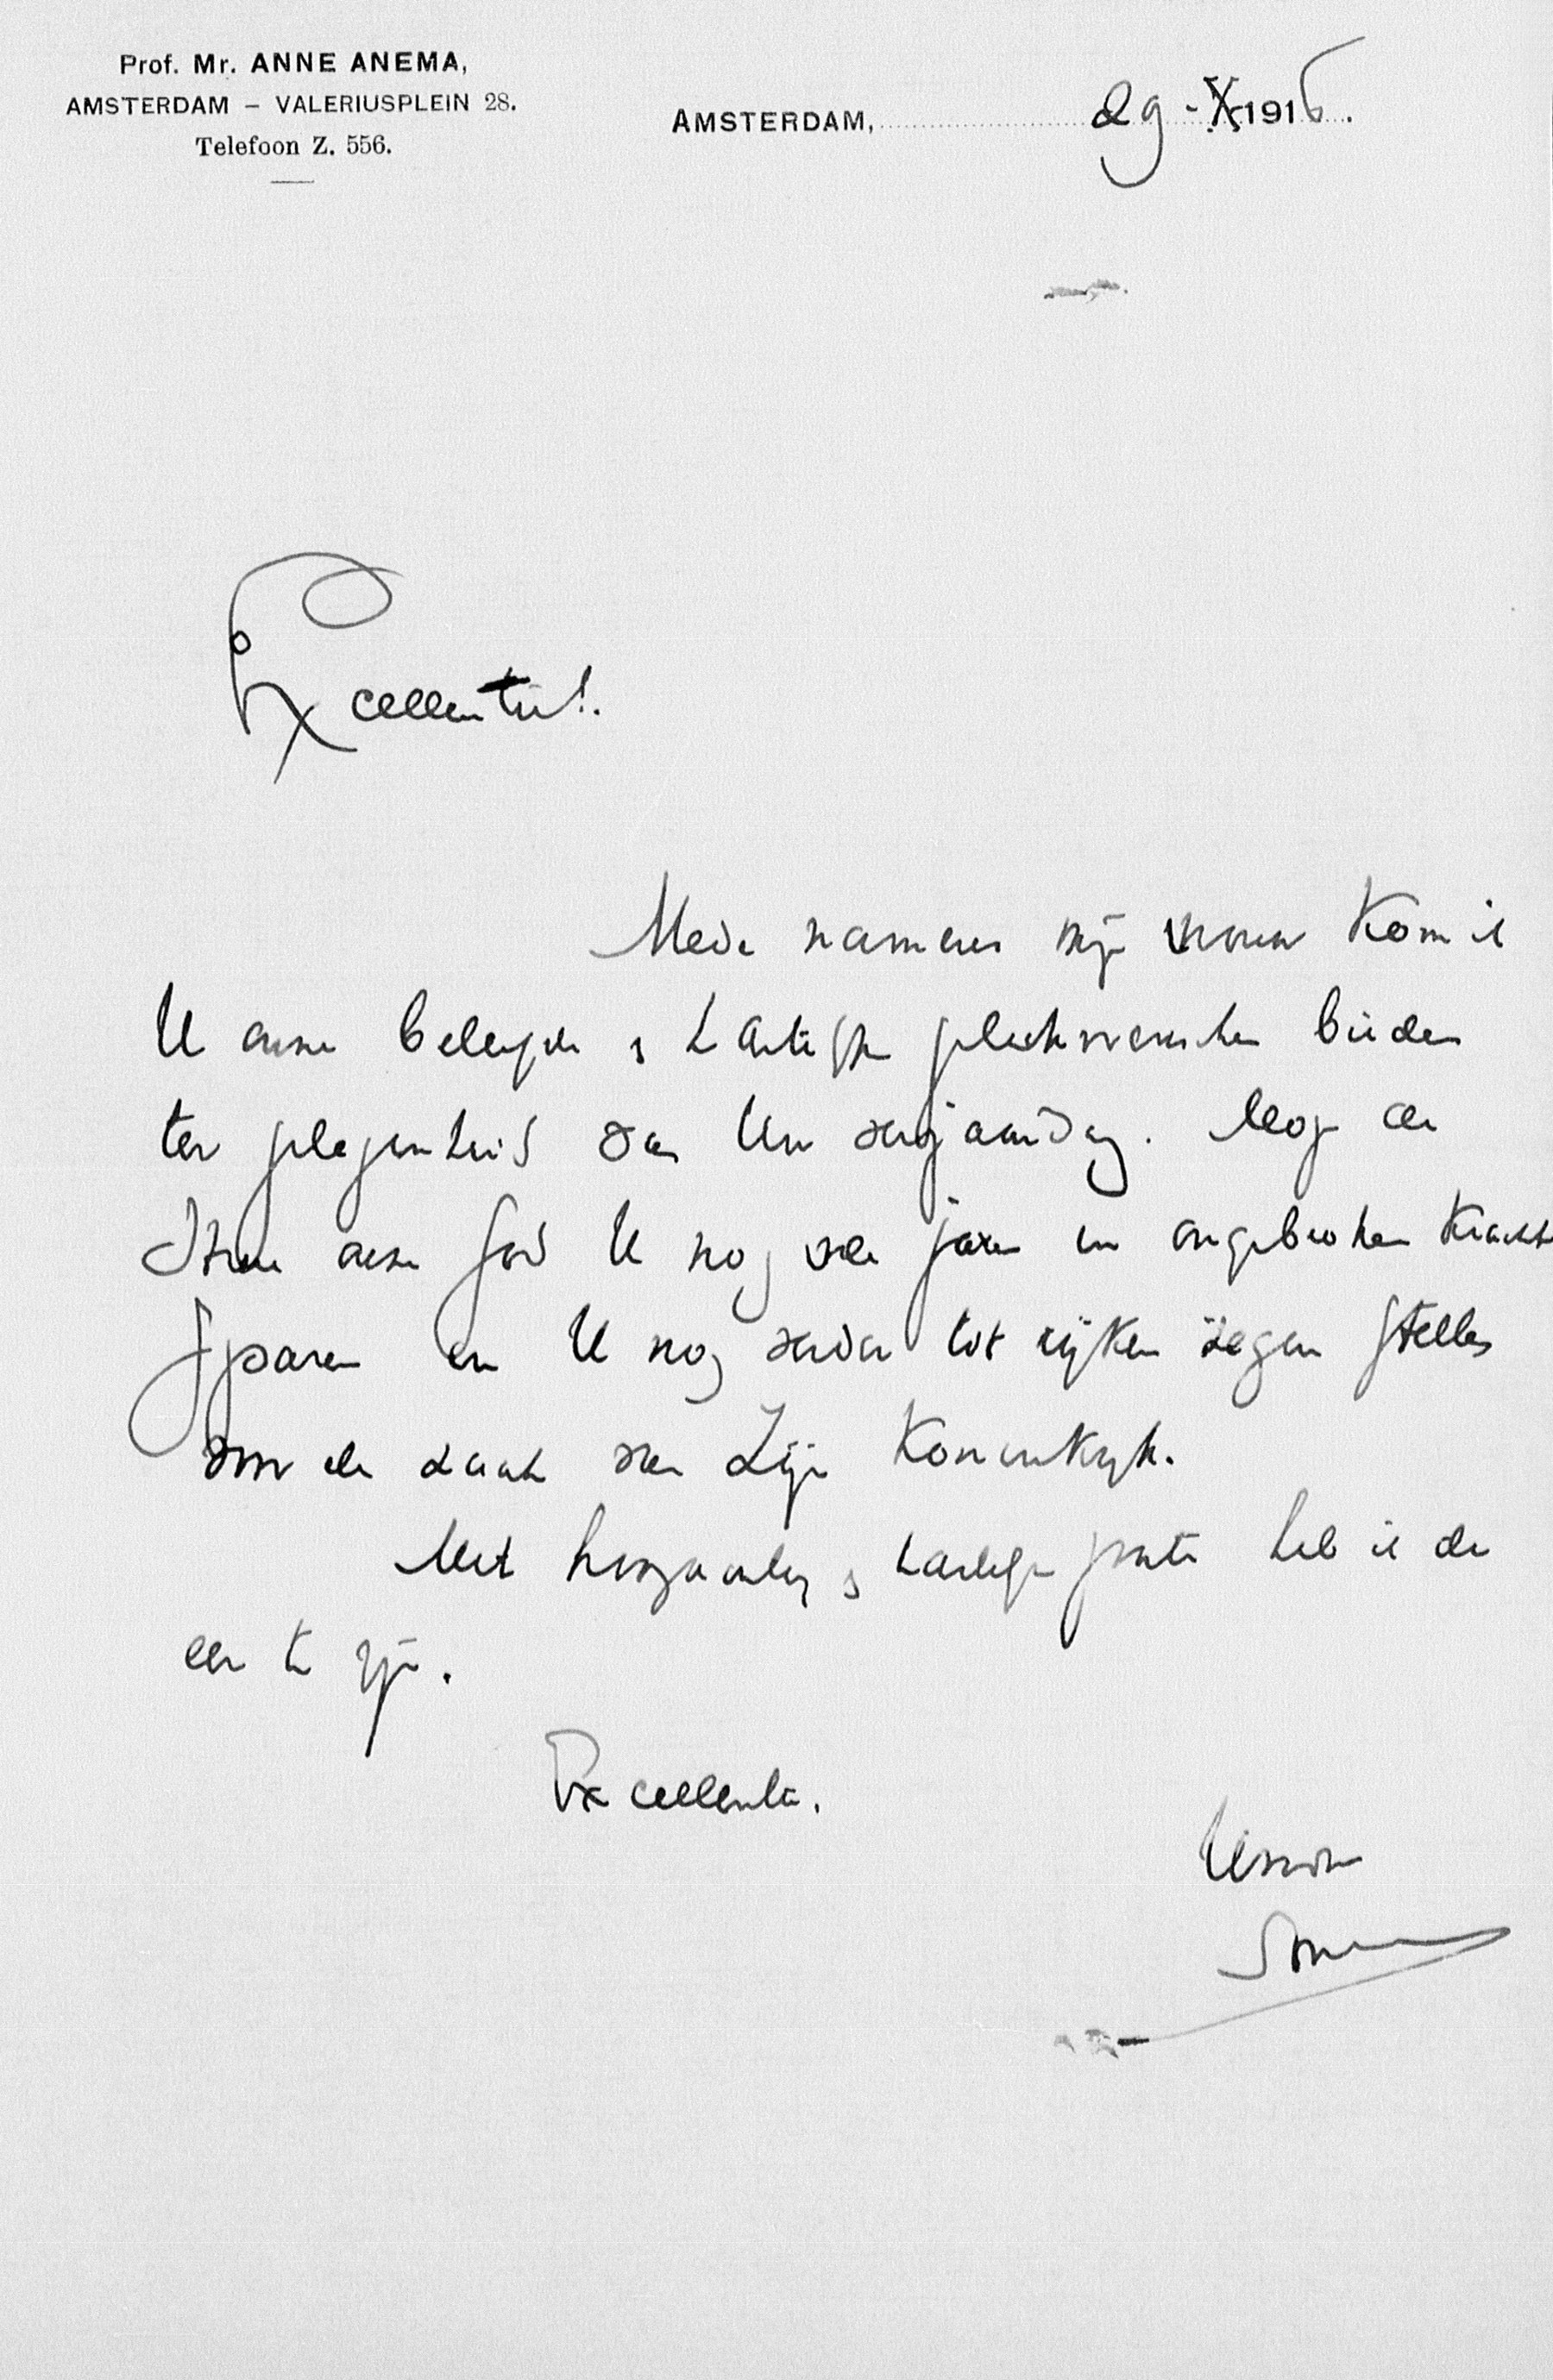 Prof. Mr. ANNE ANEMA,
AMSTERDAM – VALERIUSPLEIN 28.
Telefoon Z. 556.
AMSTERDAM, 29-X-1916.
Excellentie!
Mede namens mijn vrouw kom ik
U onze beleefde & hartelijke gelukwenschen bieden
ter gelegenheid van Uw verjaardag. Moge de
Heere onze God U nog vele jaren in ongebroken kracht
sparen en U nog verder tot rijken zegen stellen
voor de zaak van Zijn Koninkrijk.
Met hoogachting & hartelijke groeten heb ik de
eer te zijn.
Excellentie.
Uw